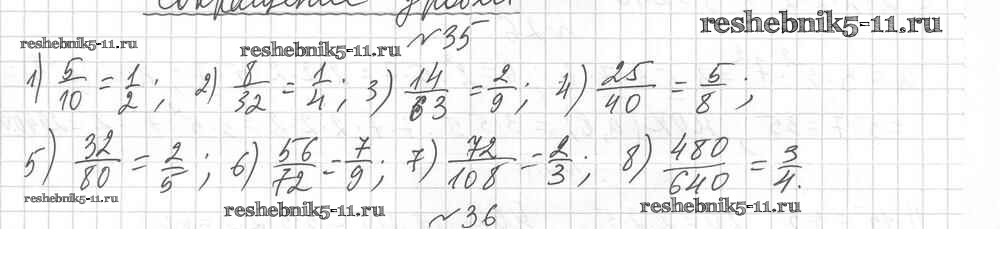 Сокращение дробей
№35
reshebnik5-11.ru reshebnik5-11.ru reshebnik5-11.ru
1) 5/10 = 1/2; 2) 8/32 = 1/4; 3) 14/63 = 2/9; 4) 25/40 = 5/8;
5) 32/80 = 2/5; 6) 56/72 = 7/9; 7) 72/108 = 2/3; 8) 480/640 = 3/4.
reshebnik5-11.ru reshebnik5-11.ru reshebnik5-11.ru
№36